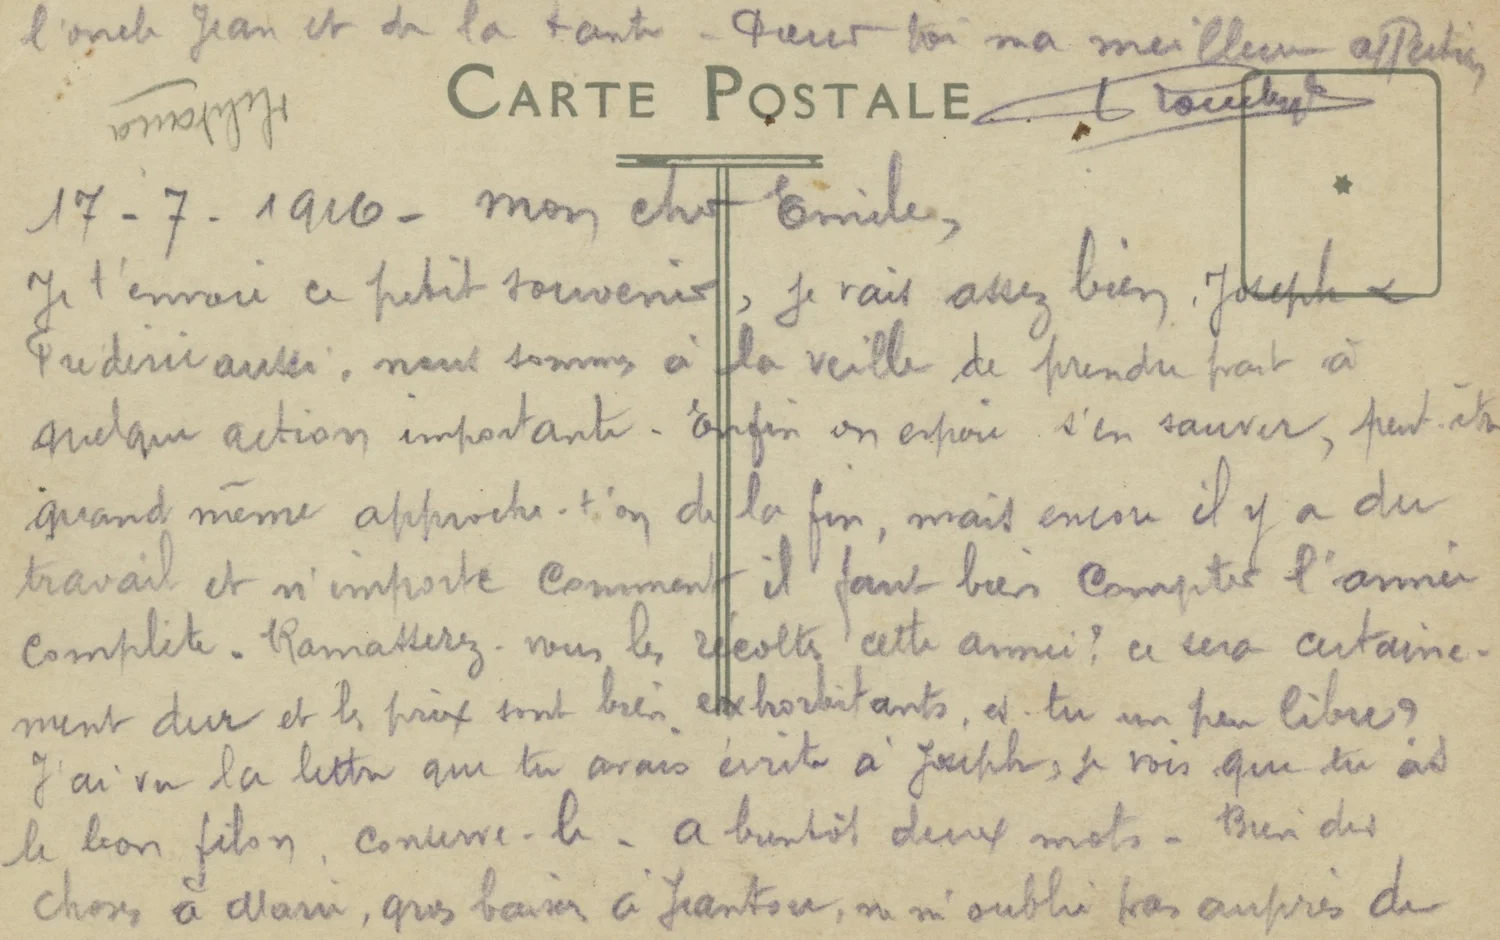 CARTE POSTALE
17-7-1916- mon cher Emile,
Je t'envoie ce petit souvenir, je vais assez bien, Joseph &
Frederic aussi, nous sommes à la veille de prendre part à
quelque action importante - Enfin on espoire s'en sauver, peut-être
quand même approche-t'on de la fin, mais encore il y a du
travail et n'importe comment il faut bien compter l'année
complète - Ramasserez-vous les récoltes cette année? ce sera certaine-
ment dur et les prix sont bien exhorbitants, es-tu un peu libre?
J'ai vu la lettre que tu avais écrite à Joseph, je vois que tu as
le bon filon, conserve-le - A bientôt deux mots - Bien des
choses à Marie, gros baiser à Jeantou, ne m'oublie pas auprès de
l'oncle Jean et de la tante - Pour toi ma meilleure affection